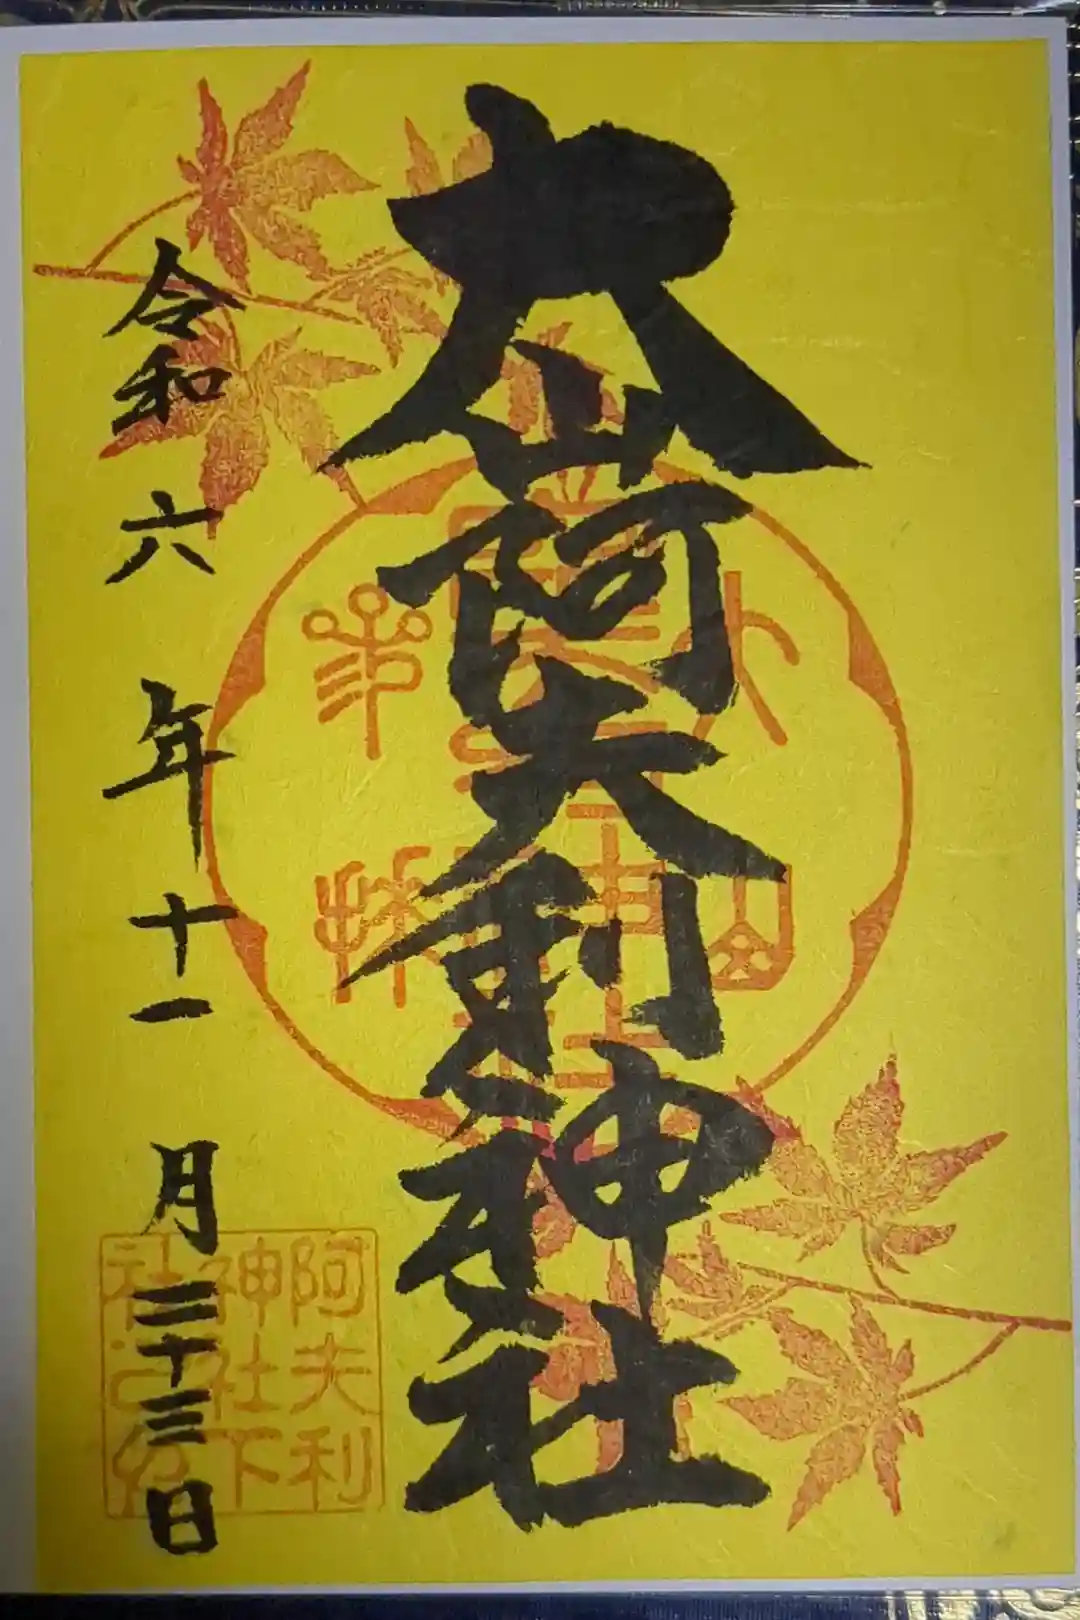 大山阿夫利神社
令和六年十一月二十三日
阿夫利
神社下
社之印